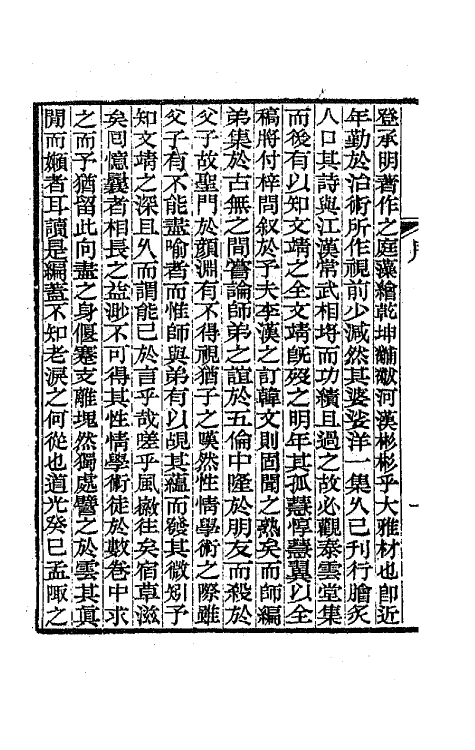 登承明著作之庭藻繪乾坤黼黻河漢彬彬乎大雅材也卽近
年勤於治術所作視前少減然其婆娑洋一集久已刊行膾炙
人口其詩與江漢常武相埒而功績且過之故必觀泰雲堂集
而後有以知文靖之全文靖旣歿之明年其孤慧惇慧翼以全
稿將付梓問叙於予夫李漢之訂韓文則固聞之熟矣而師編
弟集於古無之間嘗論師弟之誼於五倫中隆於朋友而殺於
父子故聖門於顏淵有不得視猶子之嘆然性情學術之際雖
父子有不能盡喻者而惟師與弟有以覘其蘊而發其微矧予
知文靖之深且久而謂能已於言乎哉嗟乎風徽往矣宿草滋
矣囘憶曩者相長之益渺不可得其性情學術徒於數卷中求
之而予猶留此向盡之身偃蹇支離塊然獨處譬之於雲其眞
閒而嬾者耳讀是編蓋不知老淚之何從也道光癸巳孟陬之